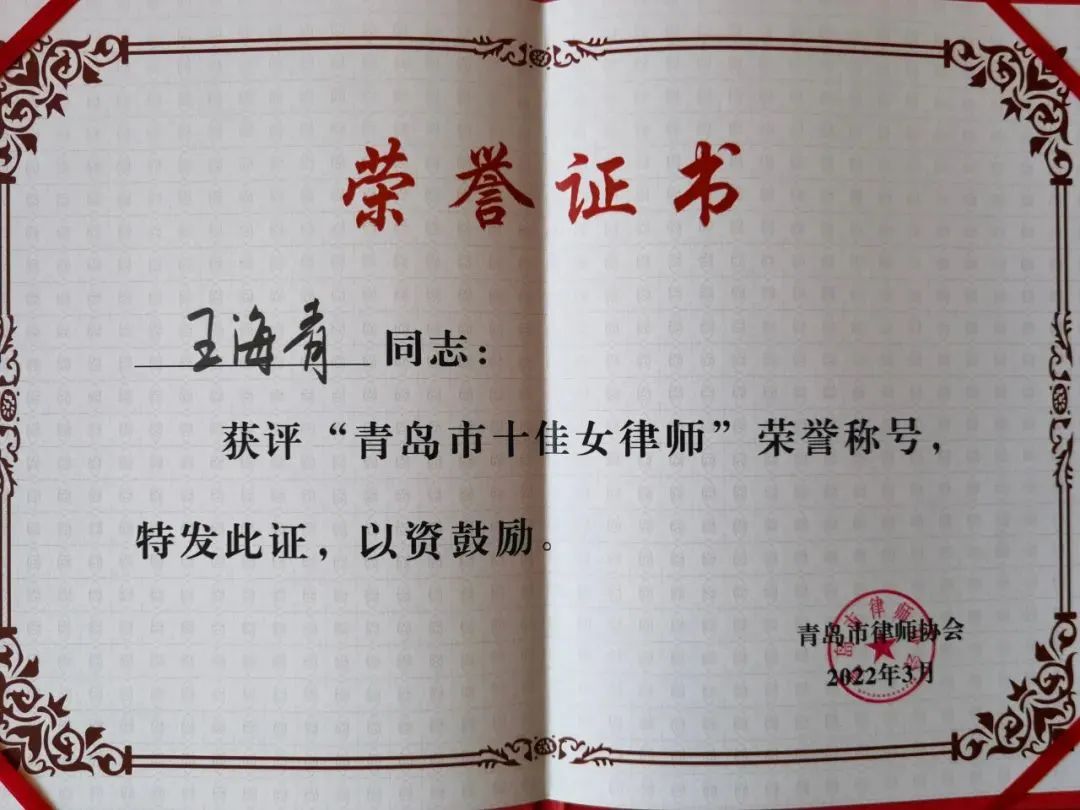 荣誉证书
王海青 同志：
获评“青岛市十佳女律师”荣誉称号，
特发此证，以资鼓励。
青岛市律师协会
2022年3月